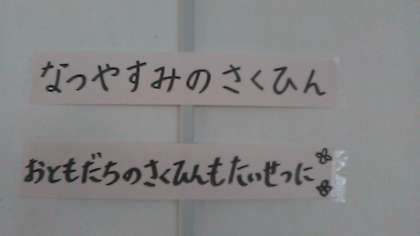 なつやすみのさくひん
おともだちのさくひんもたいせつに